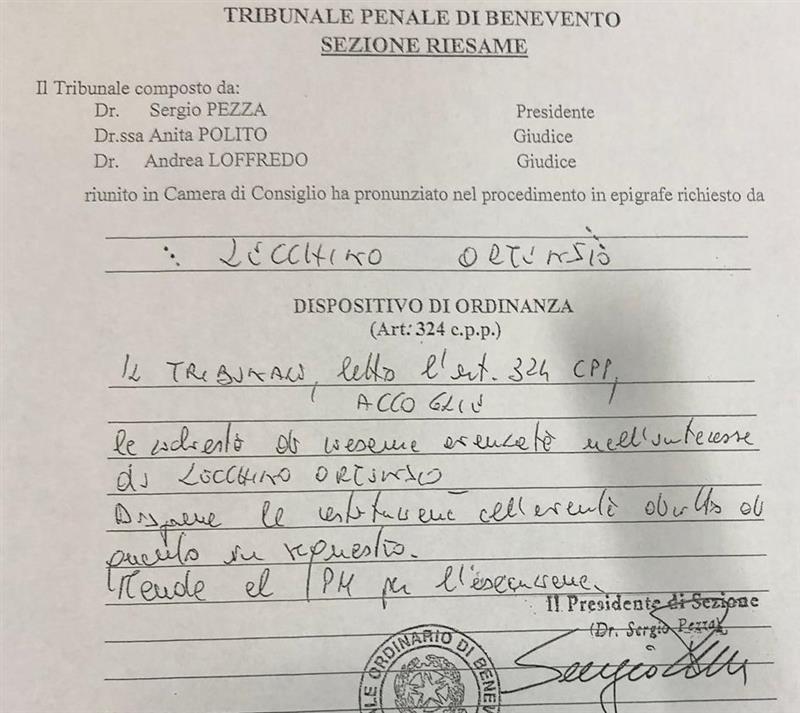 TRIBUNALE PENALE DI BENEVENTO
SEZIONE RIESAME
Il Tribunale composto da:
Dr. Sergio PEZZA Presidente
Dr.ssa Anita POLITO Giudice
Dr. Andrea LOFFREDO Giudice
riunito in Camera di Consiglio ha pronunziato nel procedimento in epigrafe richiesto da
: LECCHINO ORTENSIO
DISPOSITIVO DI ORDINANZA
(Art. 324 c.p.p.)
IL TRIBUNALE, letto l'art. 324 CPP,
ACCOGLIE
la richiesta di riesame avanzata nell'interesse
di ZECCHINO ORTENSIO
Dispone la restituzione all'avente diritto di
quanto in sequestro.
Manda al PM per l'esecuzione.
Il Presidente di Sezione
(Dr. Sergio Pezza)
ORDINARIO DI BENEV